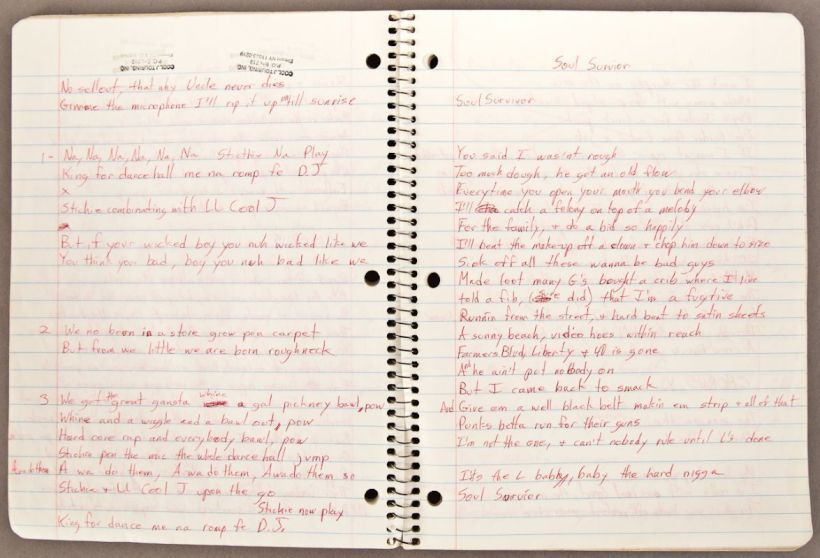 COOL J TOURING, INC
P.O. Box 219
COOL J TOURING, INC
P.O. Box 219
No sellout, that why Uncle never dies
Gimme the microphone I'll rip it up till sunrise
1- Na, Na, Na, Na, Na, Na Stichie Na Play
King for dancehall me na romp fe D.J
x
Stichie combinating with LL Cool J
But if your wicked boy you nuh wicked like we
You think you bad, boy you nuh bad like we
2 We no born in a store grow pon carpet
But from we little we are born roughneck
3 We got the great gansta whine a gal pickney bawl, pow
Whine and a wiggle and a bawl out, pow
Hard core rap and everybody, bawl, pow
Stichie pon the mic the whole dancehall jump
A wa do them A wa do them, A wa do them, A wa do them so
Stichie + LL Cool J upon the go
Stichie now play
King for dance me na romp fe D.J.
Soul Survior
Soul Survivor
You said I wasn't rough
Too much dough, he got an old flow
Everytime you open your mouth you bend your elbow
I'll catch a felony on top of a melody
For the family, + do a bid so happily
I'll beat the make-up off a clown + chop him down to size
Sick off all these wanna be bad guys
Made loot many G's bought a crib where I live
told a fib, (did) that I'm a fugitive
Runnin from the street, + hard beat to satin sheets
A sunny beach, video hoes within reach
Farmers Blvd, Liberty + 40 is gone
And he ain't put nobody on
But I came back to smack
And Give em a well black belt makin em strip + all of that
Punks betta run for their guns
I'm not the one, + can't nobody rule until L's done
It's the L babby, baby the hard nigga
Soul Survior